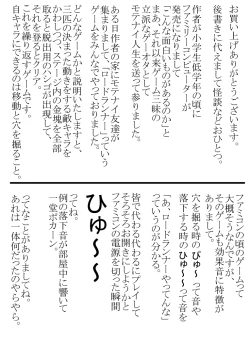 お買い上げありがとうございます。
後書きに代えまして怪談などおひとつ。
作者が小学生低学年の頃に
ファミリーコンピューターが
発売になりまして
「こんな面白いものがあるのか」と
まぁそれ以来ゲーム三昧の
立派なゲームオタクとして
モテナイ人生を送って参りました。
ある日作者の家にモテナイ友達が
集まりまして、「ロードランナー」っていう
ゲームをみんなでやっておりました。
どんなゲームかと説明いたしますと、
二匹の決まった動きをする敵キャラを
かわしながらステージ内の金塊を全部
取ると脱出用のハシゴが出現して、
それを登るとクリア。
これを繰り返すゲームです。
自キャラで使えるのは移動と穴を掘ること。
ファミコンの頃のゲームって
大概そうなんですが、
そのゲームも効果音に特徴が
ありまして
穴を掘る時のぴゅ〜って音や
落下する時のひゅ〜って音を
聞くと
「あ、ロードランナーやってんな」
っていうのが分かる。
皆で代わる代わるにプレイして
そろそろお開きにしようかと
ファミコンの電源を切った瞬間
ひゅ〜〜
ってね。
例の落下音が部屋中に響いて
一堂ポカーン。
ってなことがありましてね。
あれは一体何だったのやらやら。